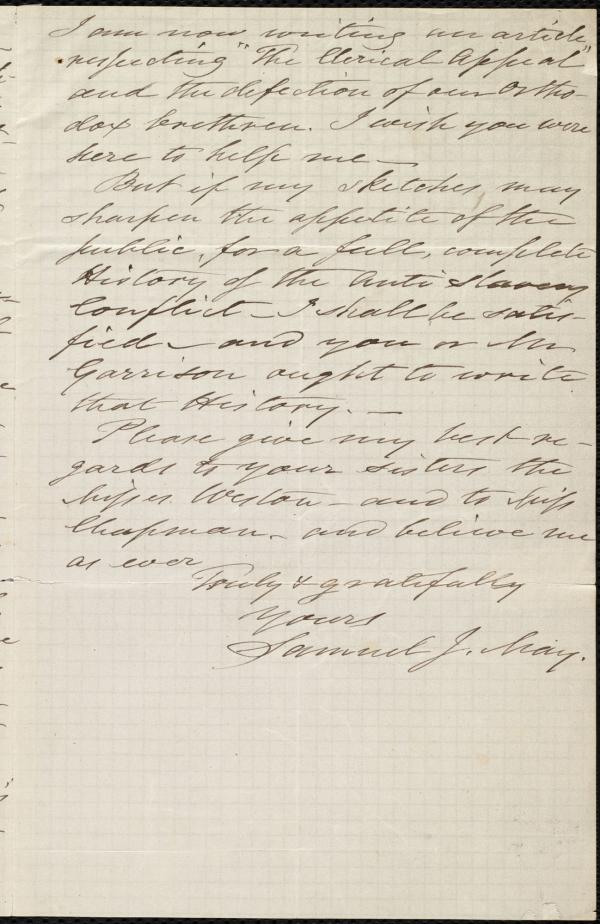 I am now writing an article
respecting "The Clerical Appeal"
and the defection of our Ortho-
dox brethren. I wish you were
here to help me—
But if my sketches, may
sharpen the appetite of the
public, for a full, complete
History of the Anti Slavery
Conflict— I shall be satis-
fied— and you or Mr
Garrison ought to write
that History.—
Please give my best re-
gards to your sisters the
Misses Weston— and to Miss
Chapman— and believe me
as ever
Truly & gratefully
Yours
Samuel J. May.